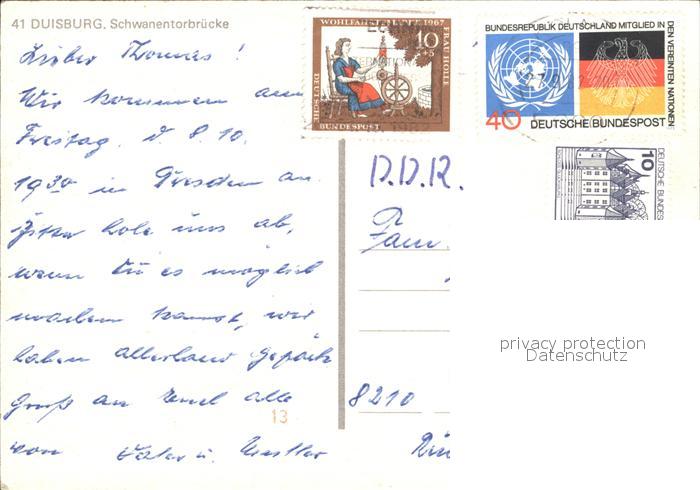 41 DUISBURG, Schwanentorbrücke
Lieber Thomas!
Wir kommen am
Freitag d 8.10.
19³⁰ in Dresden an
bitte hole uns ab,
wenn Du es möglich
machen kannst, wir
haben allerland Gepäck
Gruß an Euch alle
von Vater u. Mutter
13
WOHLFAHRTSMARKE 1967
FRAU HOLLE
10
+5
DEUTSCHE
BUNDESPOST
1982
BUNDESREPUBLIK DEUTSCHLAND MITGLIED IN
DEN VEREINTEN NATIONEN
40
DEUTSCHE BUNDESPOST
10
DEUTSCHE BUNDES
D.D.R.
Fam.
8210
privacy protection
Datenschutz